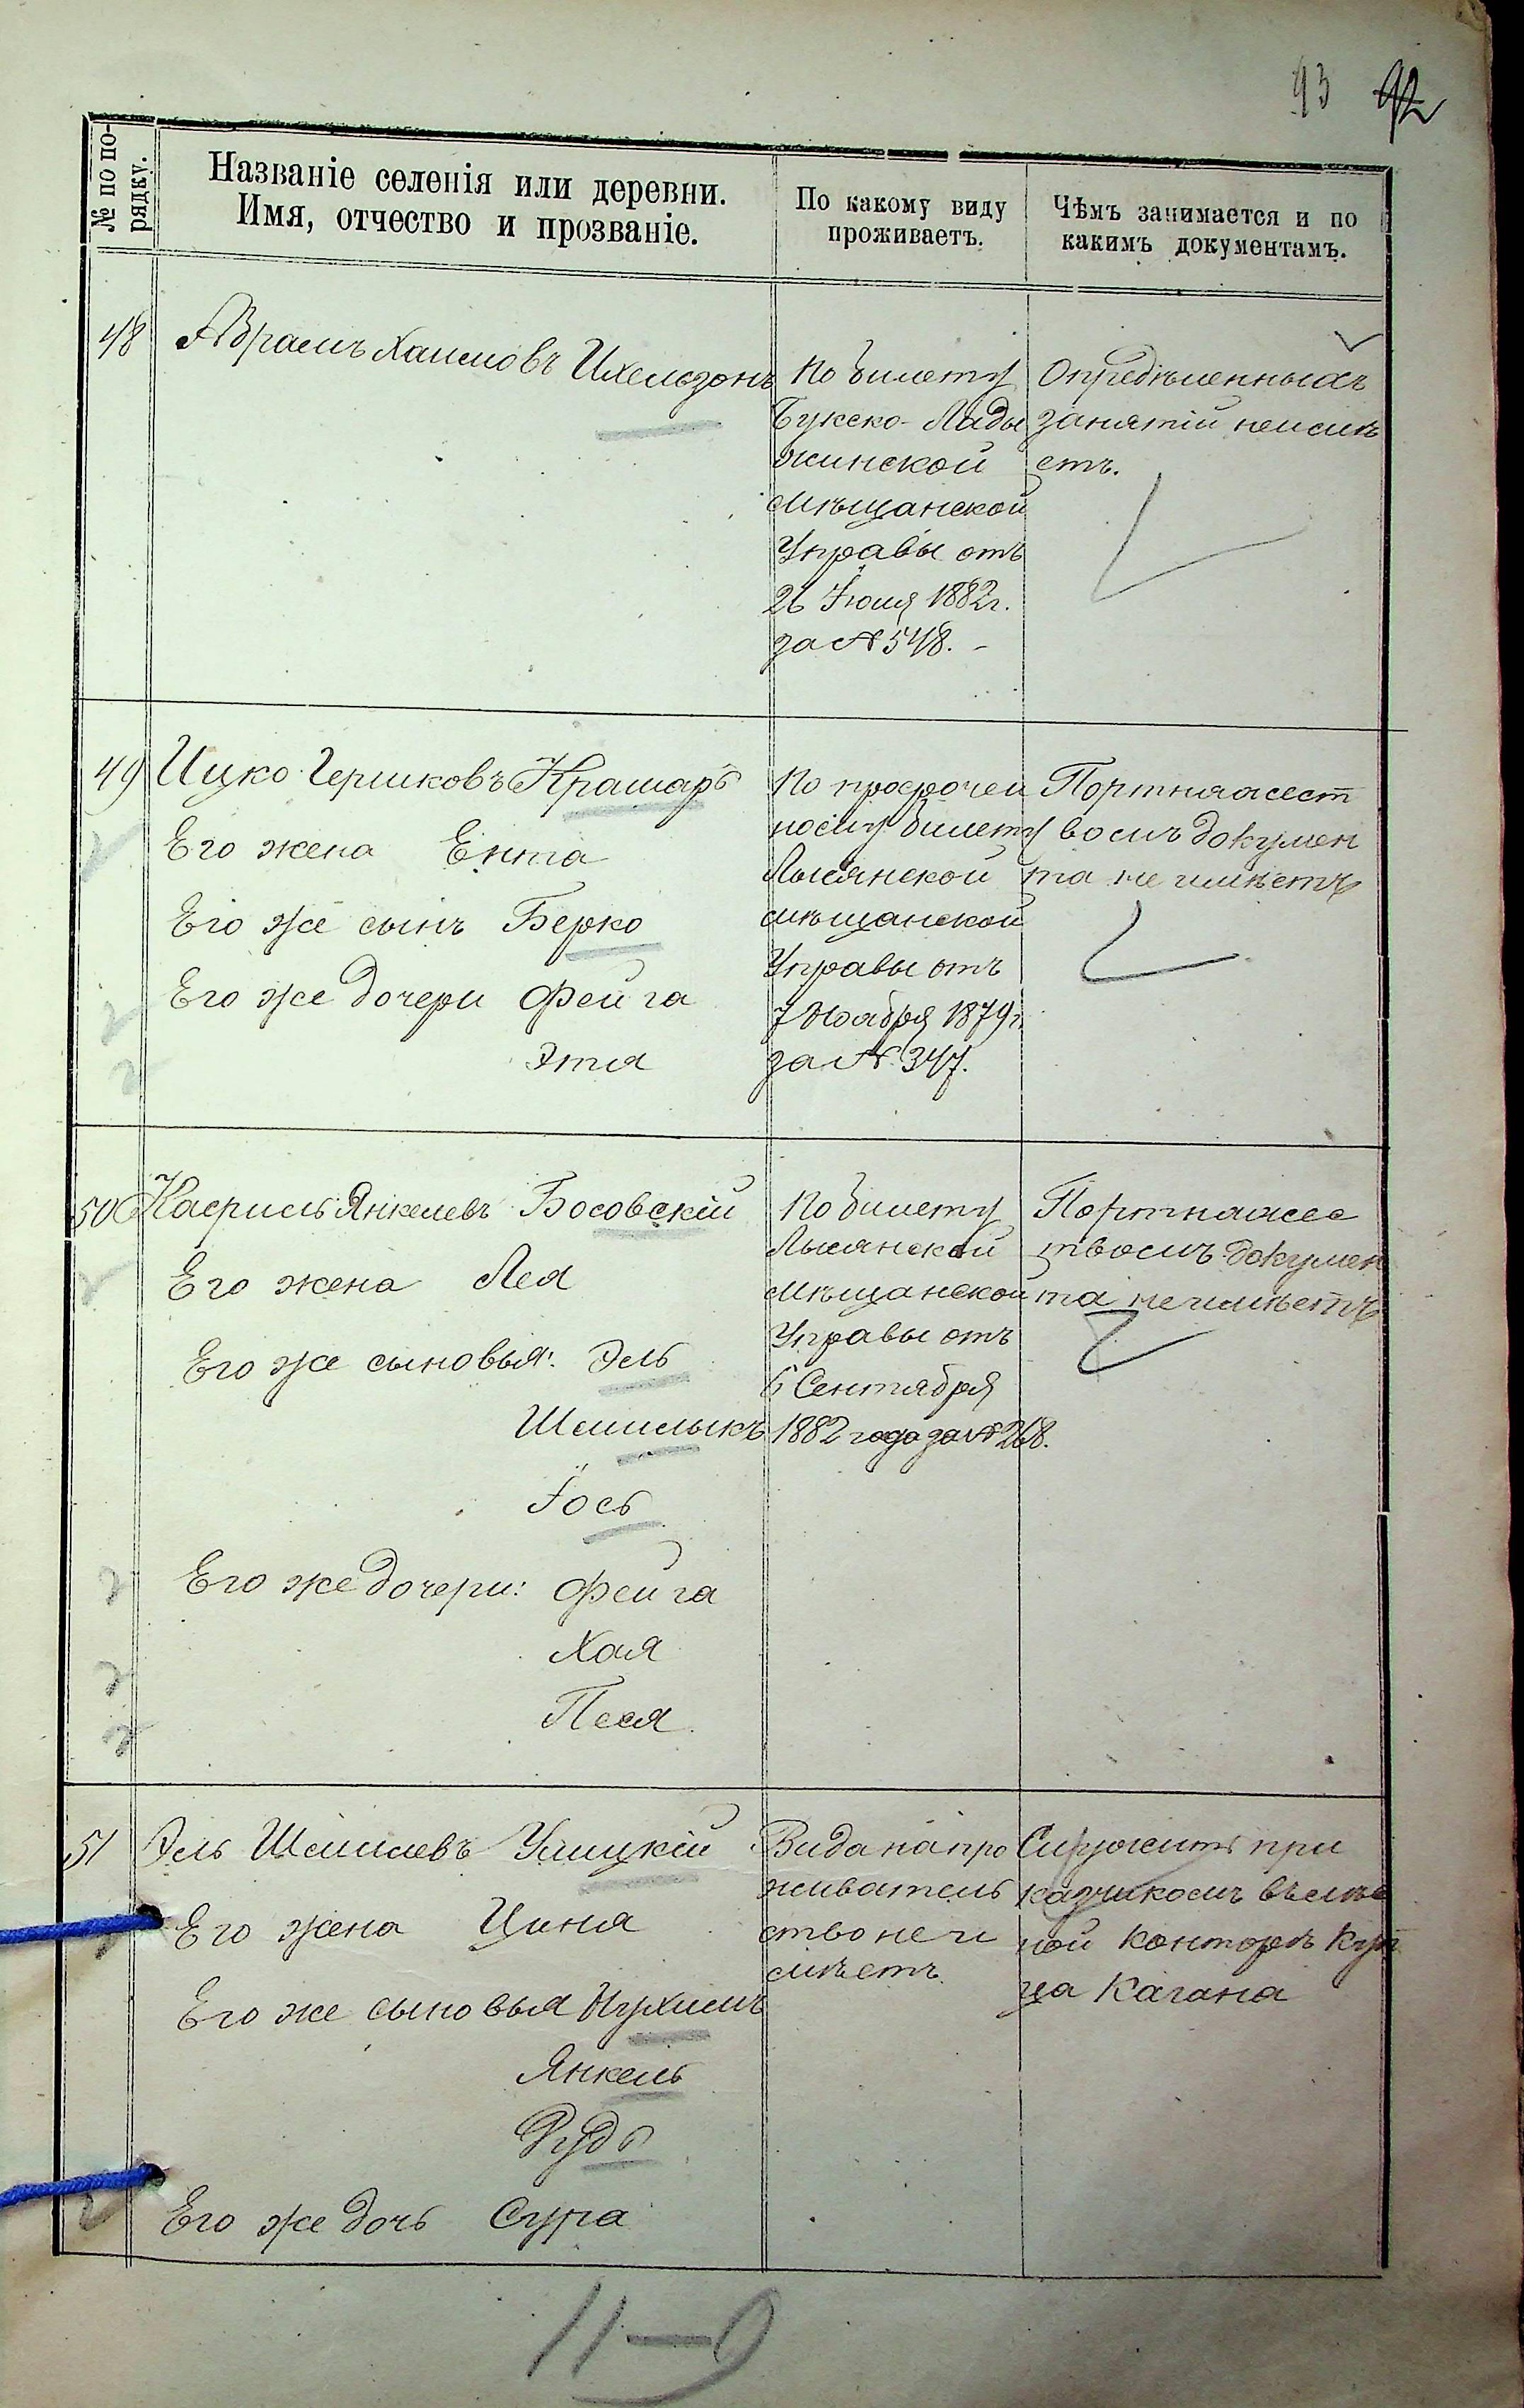 93 92
№ по по-
рядку.
Названіе селенія или деревни.
Имя, отчество и прозваніе.
По какому виду
проживаетъ.
Чѣмъ занимается и по
какимъ документамъ.
48 Абрамъ Хаимовъ Ихельзонъ
По билету
Букско-Лады
жинской
Мѣщанской
Управы отъ
26 Іюля 1882 г.
за № 548. -
Опредѣленныхъ
занятій неимѣ
етъ.
49 Ицко Гершковъ Крамаръ
Его жена Ента
Его же сынъ Берко
Его же дочери Фейга
Этя
По просрочен
ному билету
Лысянской
мѣщанской
Управы отъ
7 Ноября 1879 г.
за № 347.
Портняжест
вомъ докумен
та не имѣетъ
50 Касриль Янкелевъ Босовскій
Его жена Лея
Его же сыновья: Эль
Шмилыкъ
Іось
Его же дочери: Фейга
Хая
Песя
По билету
Лысянской
Мѣщанской
Управы отъ
6 Сентября
1882 года за № 268.
Портняжес
твомъ докумен
та неимѣетъ
51 Эль Шмилевъ Улицкій
Его жена Циня
Его же сыновья Нухимъ
Янкель
Рудь
Его же дочь Сура
Вида на про
живатель
ство не и
мѣетъ
Служитъ при
кащикомъ въ
ной конторѣ куп
ца Кагана
11—9